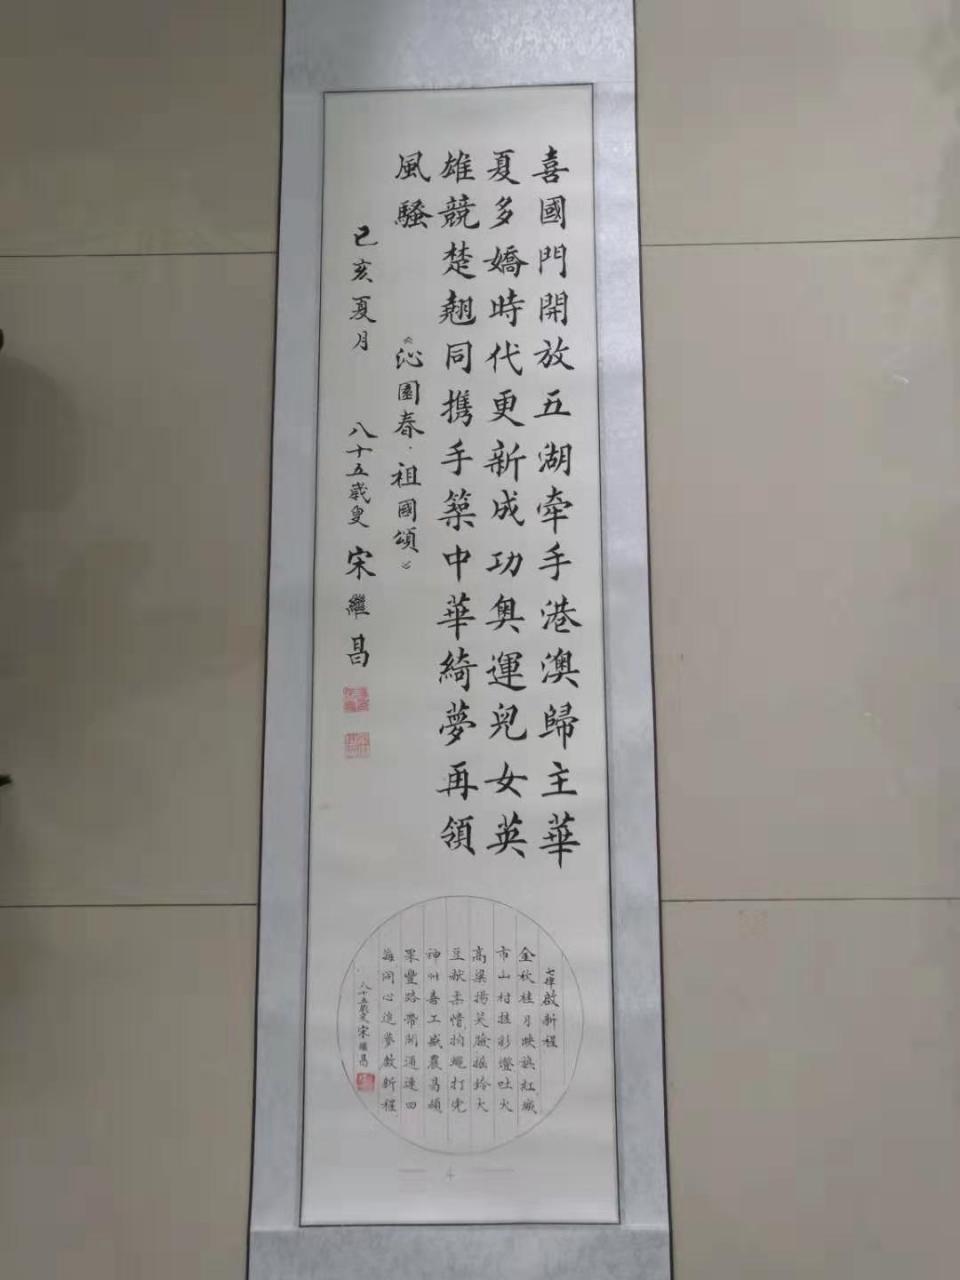 喜國門開放五湖牽手港澳歸主華
夏多嬌時代更新成功奥運兒女英
雄競楚翹同携手築中華綺夢再領
風騷
《沁園春·祖國頌》
己亥夏月 八十五歲叟 宋繼昌
七律 啟新程
金秋桂月映旗紅城
市山村挂彩燈吐火
高粱揚笑臉摇鈴大
豆献柔情拍蠅打虎
神州喜工盛農昌碩
果豐路帶開通連四
海同心追夢啟新程
八十五歲叟宋繼昌